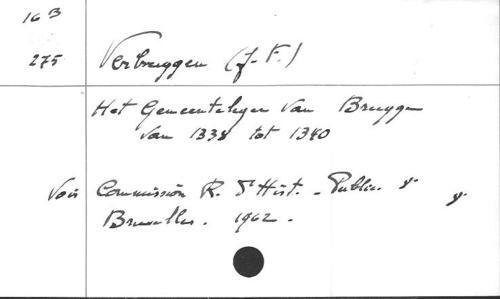 16 B
275 Verbruggen (J-F.)
Het Gemeenteleger van Brugge
van 1338 tot 1340
Voir Commission R. d'Hist. - Public.
Bruxelles. 1962.